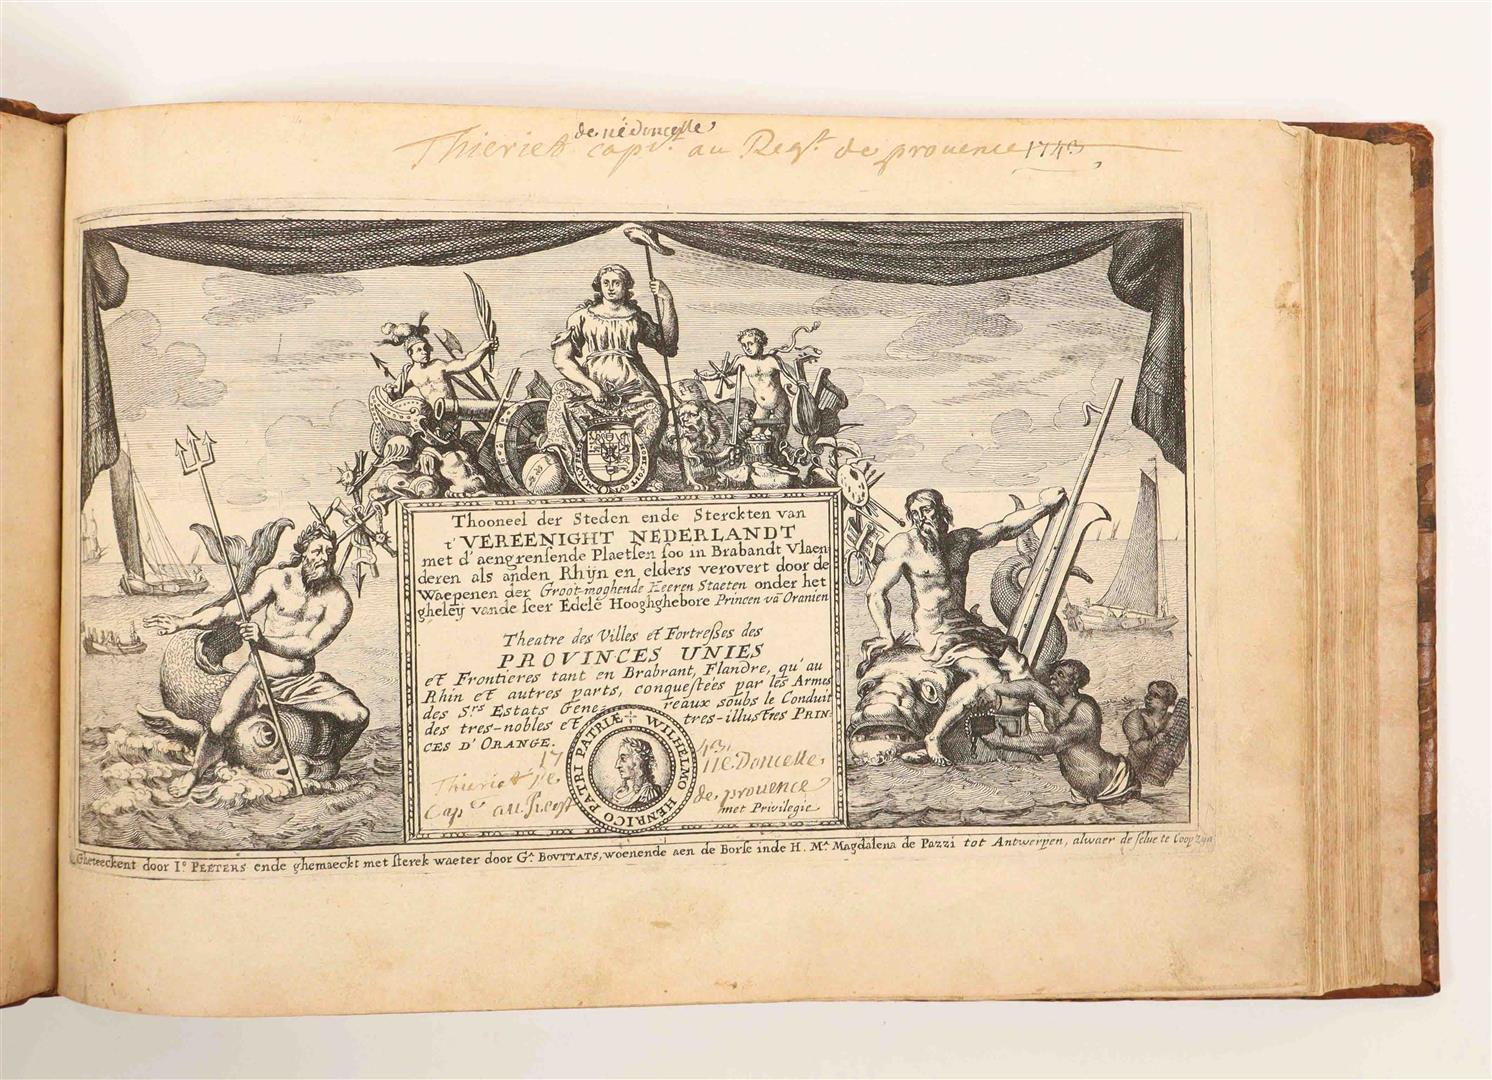 de nédoncelle
Thieriet capt. au Regt. de prouence 1743,
Thooneel der Steden ende Sterckten van
t' VEREENIGHT NEDERLANDT
met d' aengrensende Plaetsen soo in Brabandt Vlaen
deren als anden Rhijn en elders verovert door de
Waepenen der Groot-moghende Heeren Staeten onder het
gheleij vande seer Edelē Hooghghebore Princen vā Oranien
Theatre des Villes et Fortresses des
PROVINCES UNIES
et Frontieres tant en Brabrant, Flandre, qu'au
Rhin et autres parts, conquestées par les Armes
des Srs Estats Gene reaux soubs le Conduit
des tres-nobles et tres-illustres PRIN-
CES D'ORANGE.
WILHELMO HENRICO PATRI PATRIÆ
17 43,
Thieriet De néDoncelle,
Cape au Regt de prouence
met Privilegie
Gheteeckent door Io. PEETERS ende ghemaeckt met sterck waeter door Gs. BOUTTATS, woenende aen de Borse inde H. Ma. Magdalena de Pazzi tot Antwerpen, alwaer de selve te Coop zijn